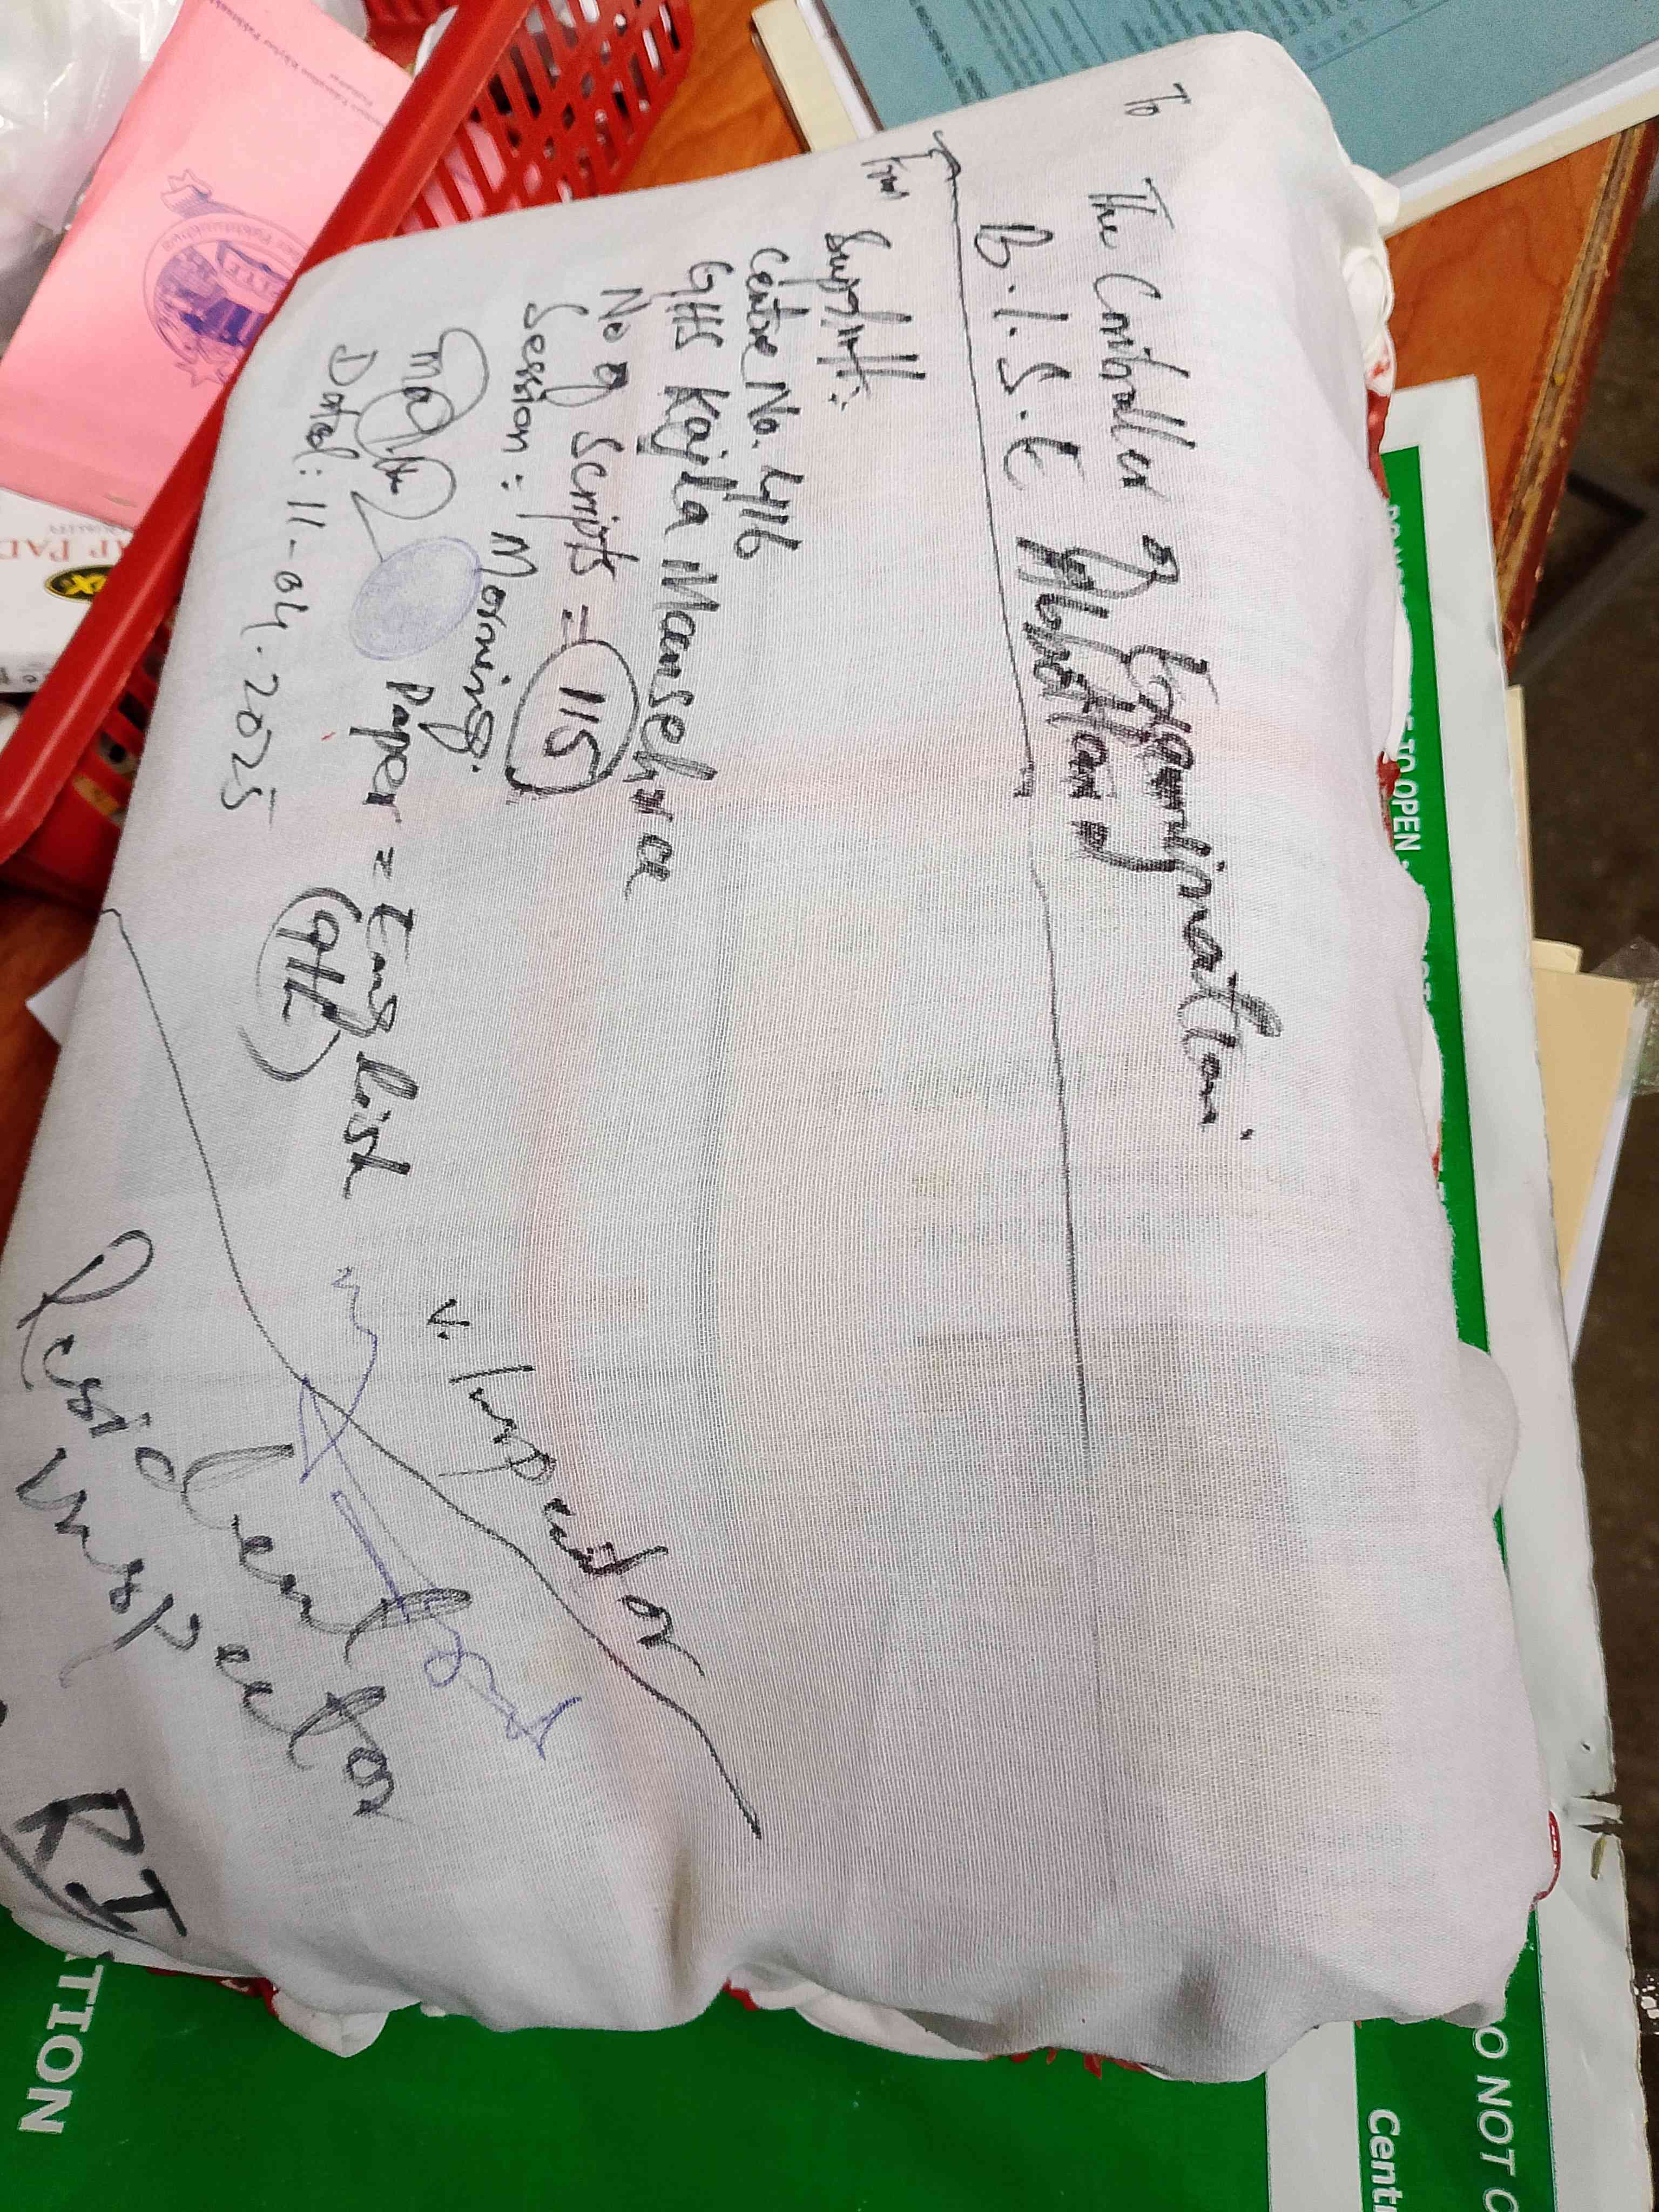 To
The Controller of Examination
B.I.S.E Abbottabad
From
Supdtt:
Centre No. 4116
GHS Kajla Mansehra
No of Scripts = 115
Session: Morning.
Paper = English
(9th)
Dated: 11-04-2025
V. Inspector
Resident
Inspector
RI
TO OPEN
TION
O NOT O
Cent
MP PAD